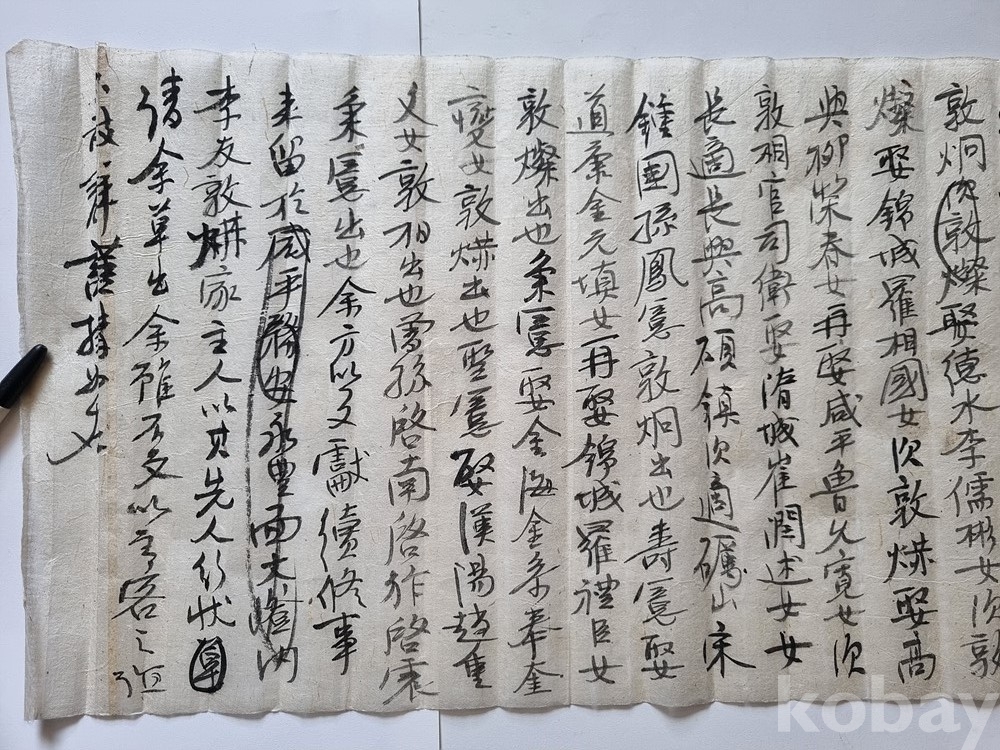 敦炯 敦燦娶德水李儒彬女次敦
燦娶錦城羅相國女次敦烘娶高
興柳榮春女再娶咸平魯允寬女次
敦相官司衛娶隋城崔潤述女女
長適長興高碩鎮次適礪山宋
鍾圍孫鳳憲敦炯出也壽憲娶
道康金元填女再娶錦城羅禮臣女
敦燦出也秉憲娶金海金奉奎
女敦烘出也聖憲娶漢陽趙重
女敦相出也曾孫啓南啓祚啓
秉憲出也余方以文獻續修事
來留於咸平 永豊面大 內
李友敦烘家主人以其先人行狀草
倩余草出余雖不文以主客之
辭謹據如右
kobay